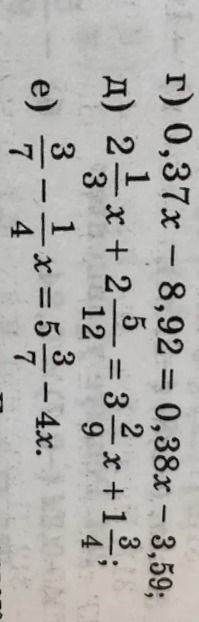 г) 0,37x − 8,92 = 0,38x − 3,59;
д) 2 1/3 x + 2 5/12 = 3 2/9 x + 1 3/4;
е) 3/7 − 1/4 x = 5 3/7 − 4x.